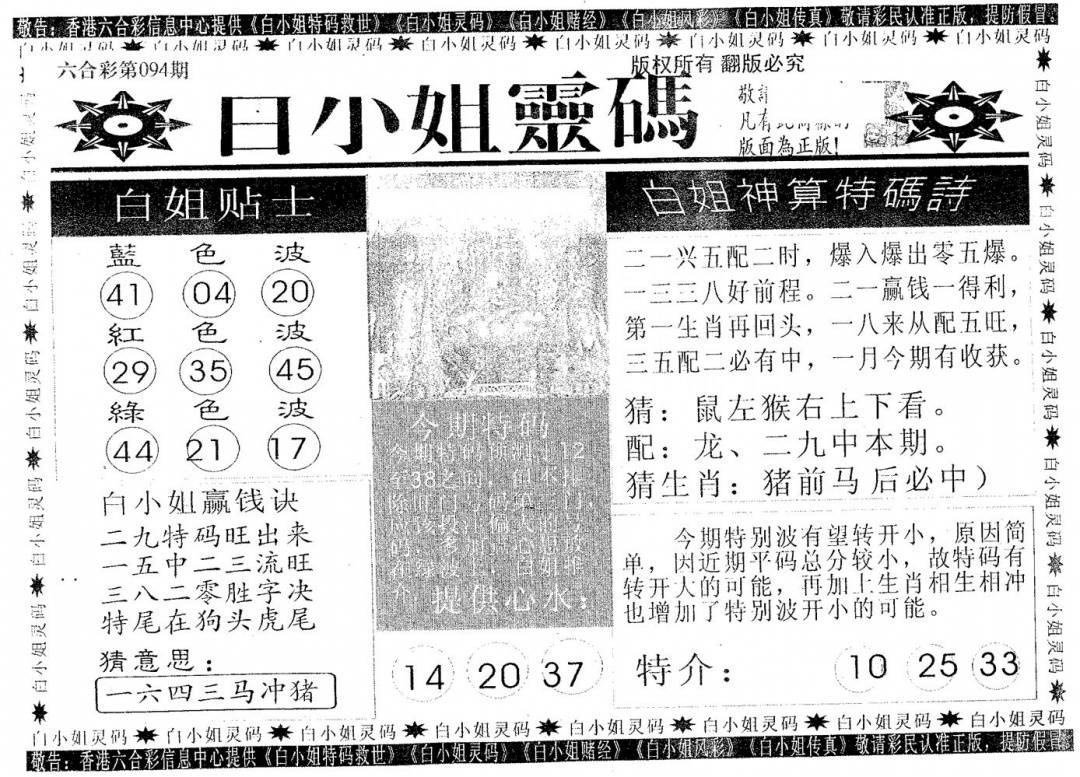 敬告：香港六合彩信息中心提供《白小姐特码救世》《白小姐灵码》《白小姐赌经》《白小姐风彩》《白小姐传真》敬请彩民认准正版，提防假冒。
白小姐灵码 白小姐灵码 白小姐灵码 白小姐灵码 白小姐灵码 白小姐灵码 白小姐灵码 白小姐灵码
六合彩第094期
版权所有 翻版必究
白小姐靈碼
敬請
凡有
版面為正版!
白姐贴士
藍 色 波
41 04 20
紅 色 波
29 35 45
綠 色 波
44 21 17
白小姐赢钱诀
二九特码旺出来
一五中二三流旺
三八二零胜字决
特尾在狗头虎尾
猜意思：
一六四三马冲猪
今期特码
提供心水：
14 20 37
白姐神算特碼詩
二一兴五配二时，爆入爆出零五爆。
一三三八好前程。二一赢钱一得利，
第一生肖再回头，一八来从配五旺，
三五配二必有中，一月今期有收获。
猜：鼠左猴右上下看。
配：龙、二九中本期。
猜生肖：猪前马后必中）
今期特别波有望转开小，原因简
单，因近期平码总分较小，故特码有
转开大的可能，再加上生肖相生相冲
也增加了特别波开小的可能。
特介： 10 25 33
白小姐灵码 白小姐灵码 白小姐灵码 白小姐灵码 白小姐灵码 白小姐灵码 白小姐灵码 白小姐灵码
敬告：香港六合彩信息中心提供《白小姐特码救世》《白小姐灵码》《白小姐赌经》《白小姐风彩》《白小姐传真》敬请彩民认准正版，提防假冒